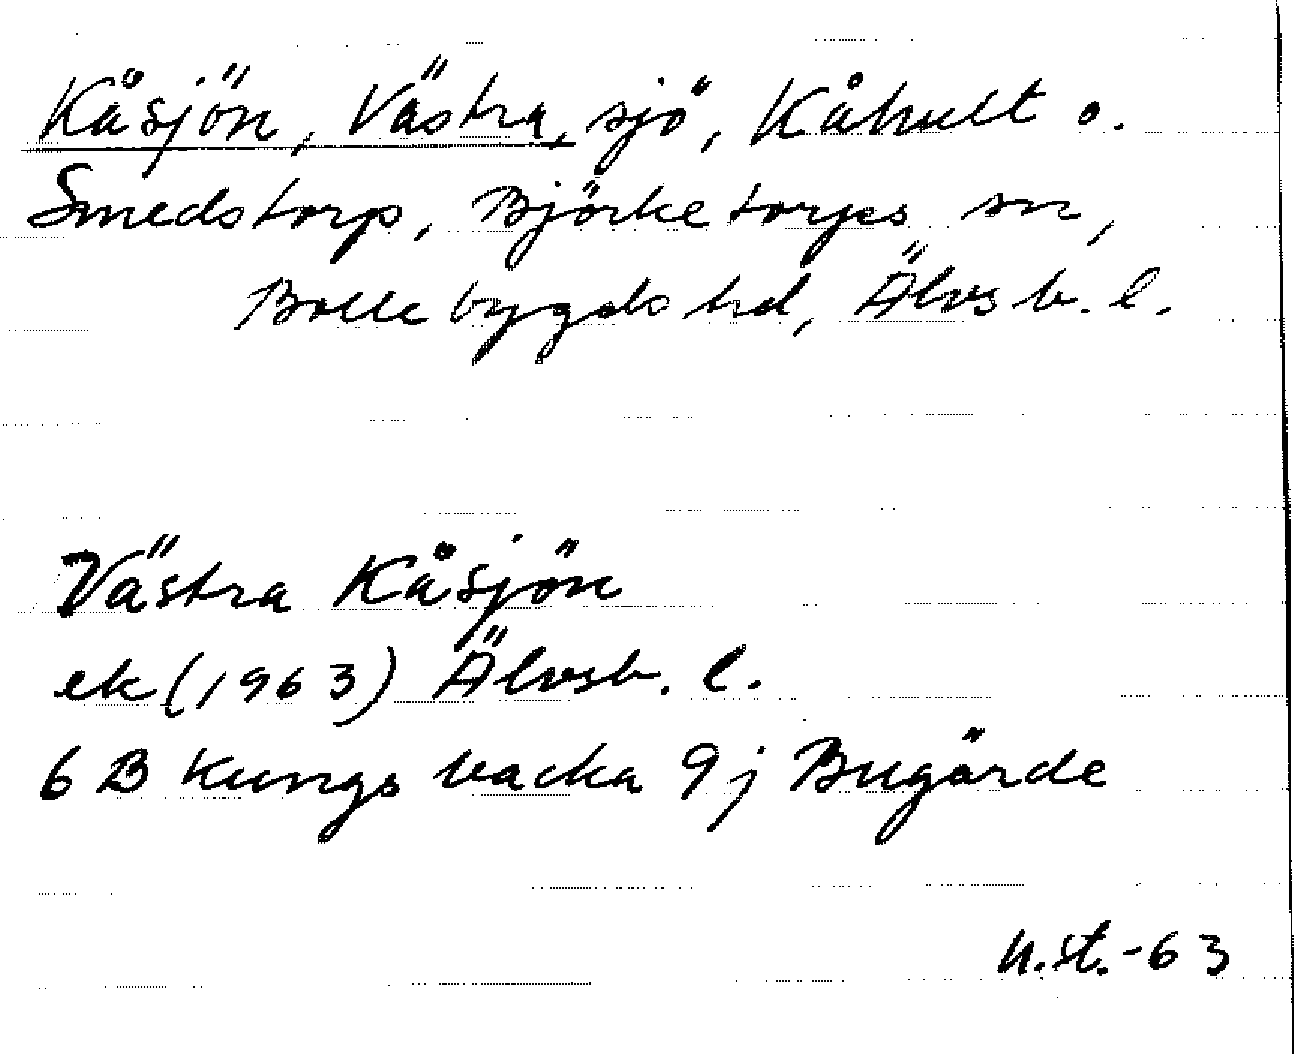 Kåsjön, Västra, sjö, Kåhult o.
Smedstorp, Björketorps sn,
Bollebygds hd, Älvsb. l.
Västra Kåsjön
ek (1963) Älvsb. l.
6 B Kungsbacka 9j Bugärde
U.St.-63